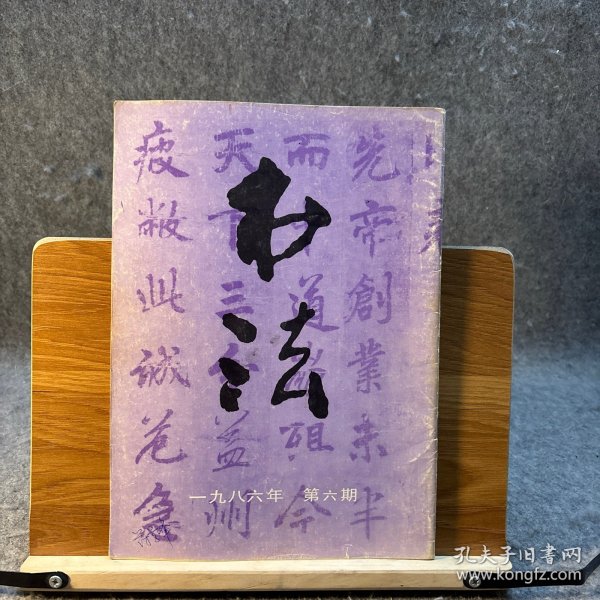 书法
先帝創業未半
而道崩殂今
天下三分益州
疲敝此誠危急
一九八六年 第六期
孔夫子旧书网
www.kongfz.com